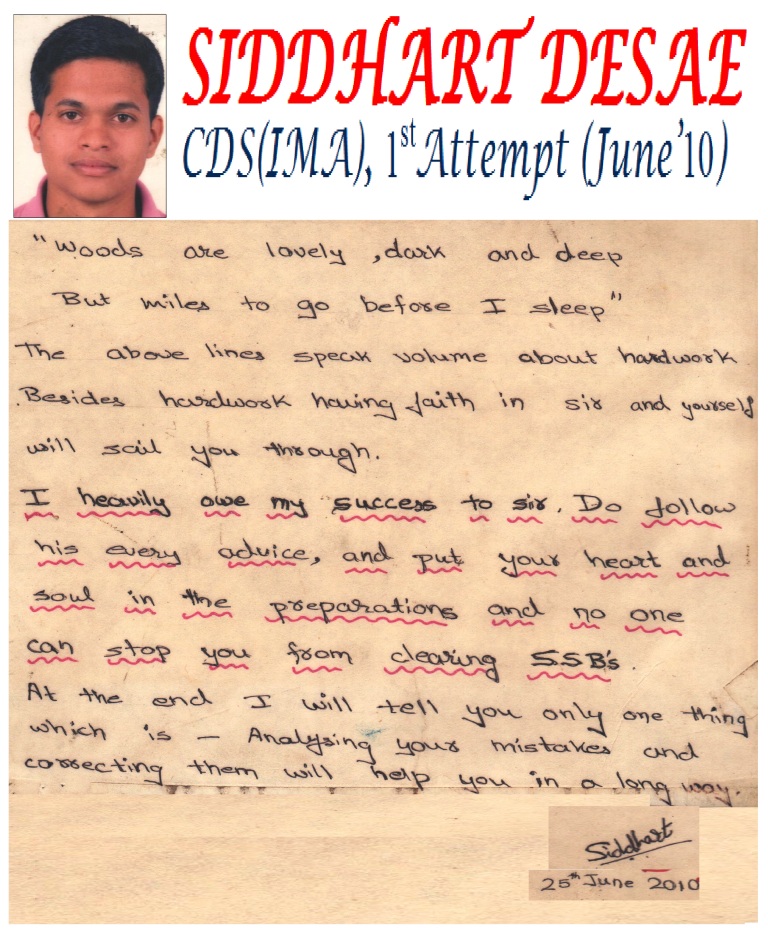 SIDDHART DESAE
CDS(IMA), 1st Attempt (June'10)
"Woods are lovely, dark and deep
But miles to go before I sleep"
The above lines speak volume about hardwork.
Besides hardwork having faith in sir and yourself
will sail you through.
I heavily owe my success to sir. Do follow
his every advice, and put your heart and
soul in the preparations and no one
can stop you from clearing SSB's.
At the end I will tell you only one thing
which is - Analysing your mistakes and
correcting them will help you in a long way.
Siddhart
25th June 2010